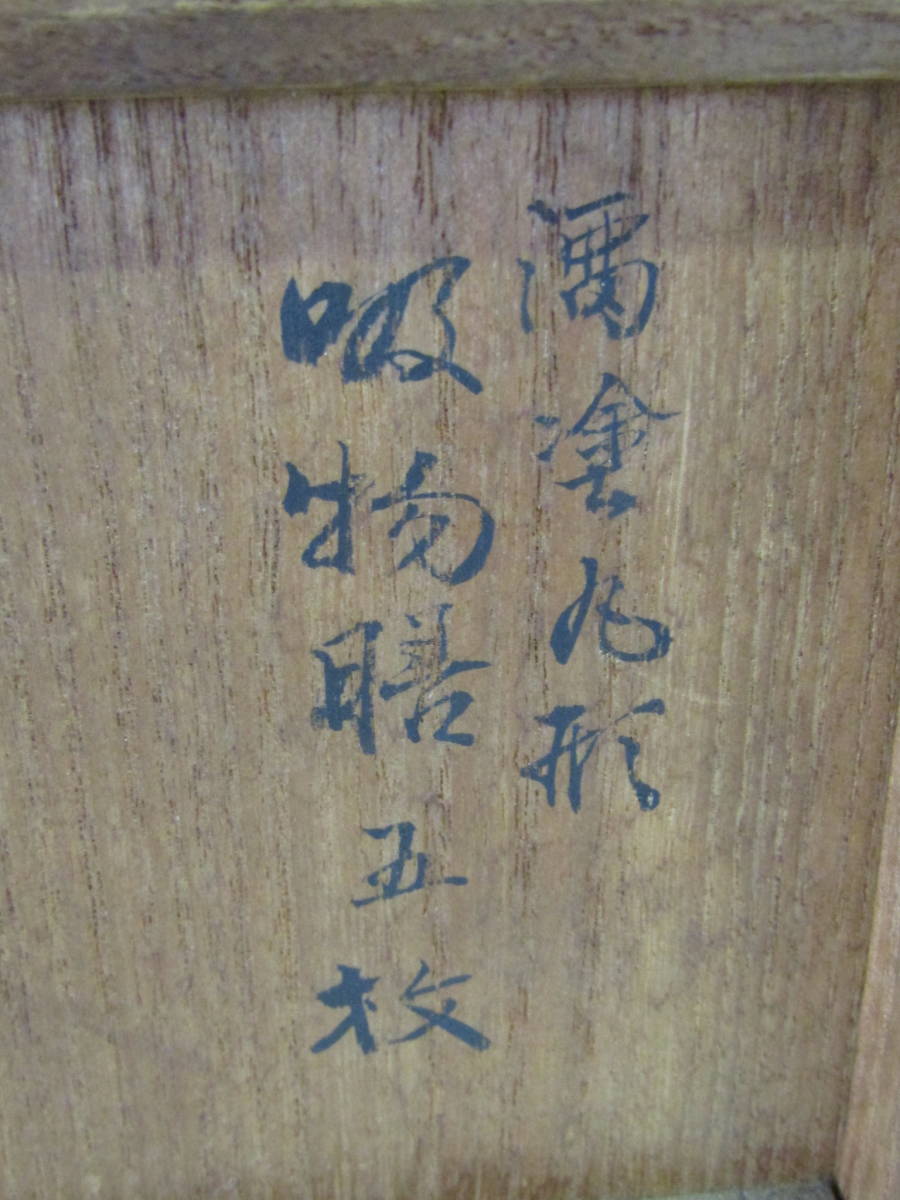 潤塗丸形
吸物膳五枚